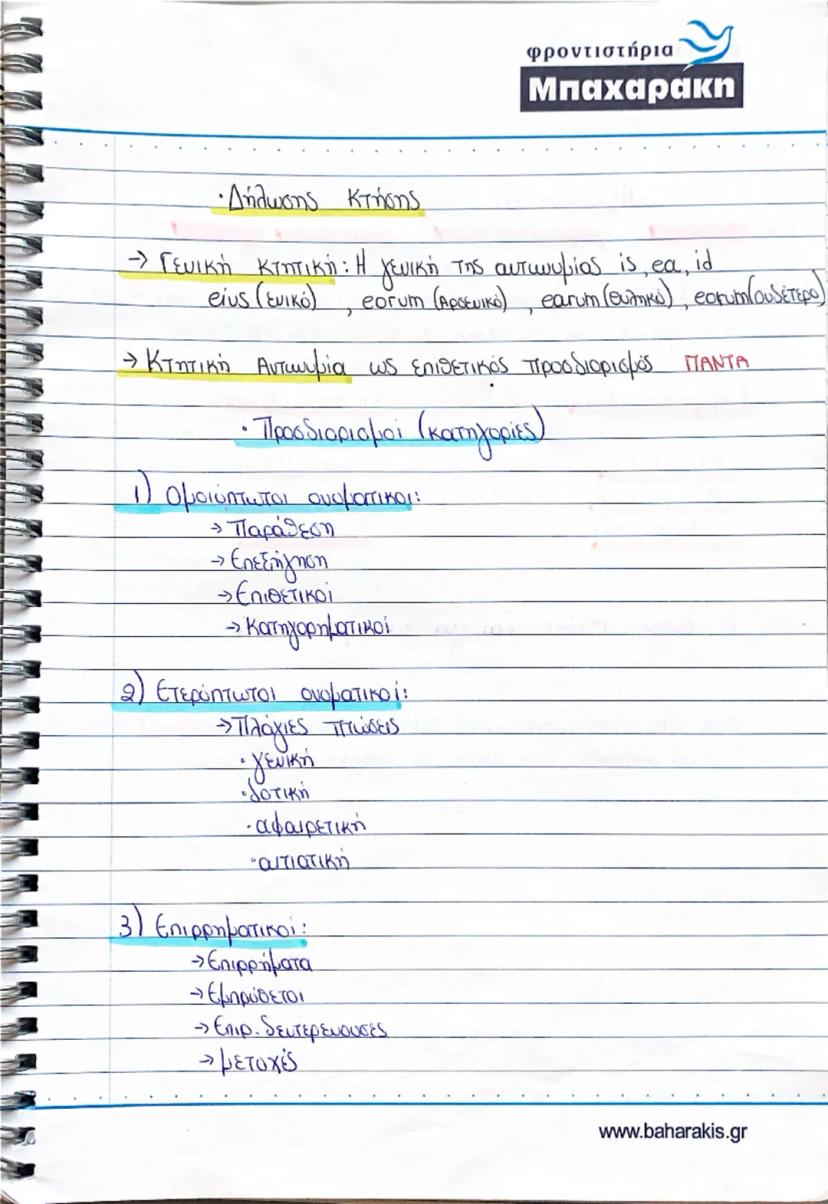 φροντιστήρια
Μπαχαράκη
· Δήλωσης Κτήσης
→ Γενική κτητική: Η γενική της αντωνυμίας is, ea, id
eius (ενικό) , eorum (Αρσενικό) , earum (θυληκό) , eorum (ουδέτερο)
→ Κτητική Αντωνυμία ως επιθετικός προσδιορισμός ΠΑΝΤΑ
· Προσδιορισμοί (κατηγορίες)
1) Ομοιόπτωτοι ονοματικοι:
→ Παράθεση
→ Επεξήγηση
→ Επιθετικοί
→ Κατηγορηματικοί
2) Ετερόπτωτοι ονοματικοί:
→ Πλάγιες πτώσεις
· γενική
· δοτική
· αφαιρετική
· αιτιατική
3) Επιρρηματικοί:
→ Επιρρήματα
→ Εμπρόθετοι
→ Επιρ. δευτερευουσες
→ μετοχές
www.baharakis.gr